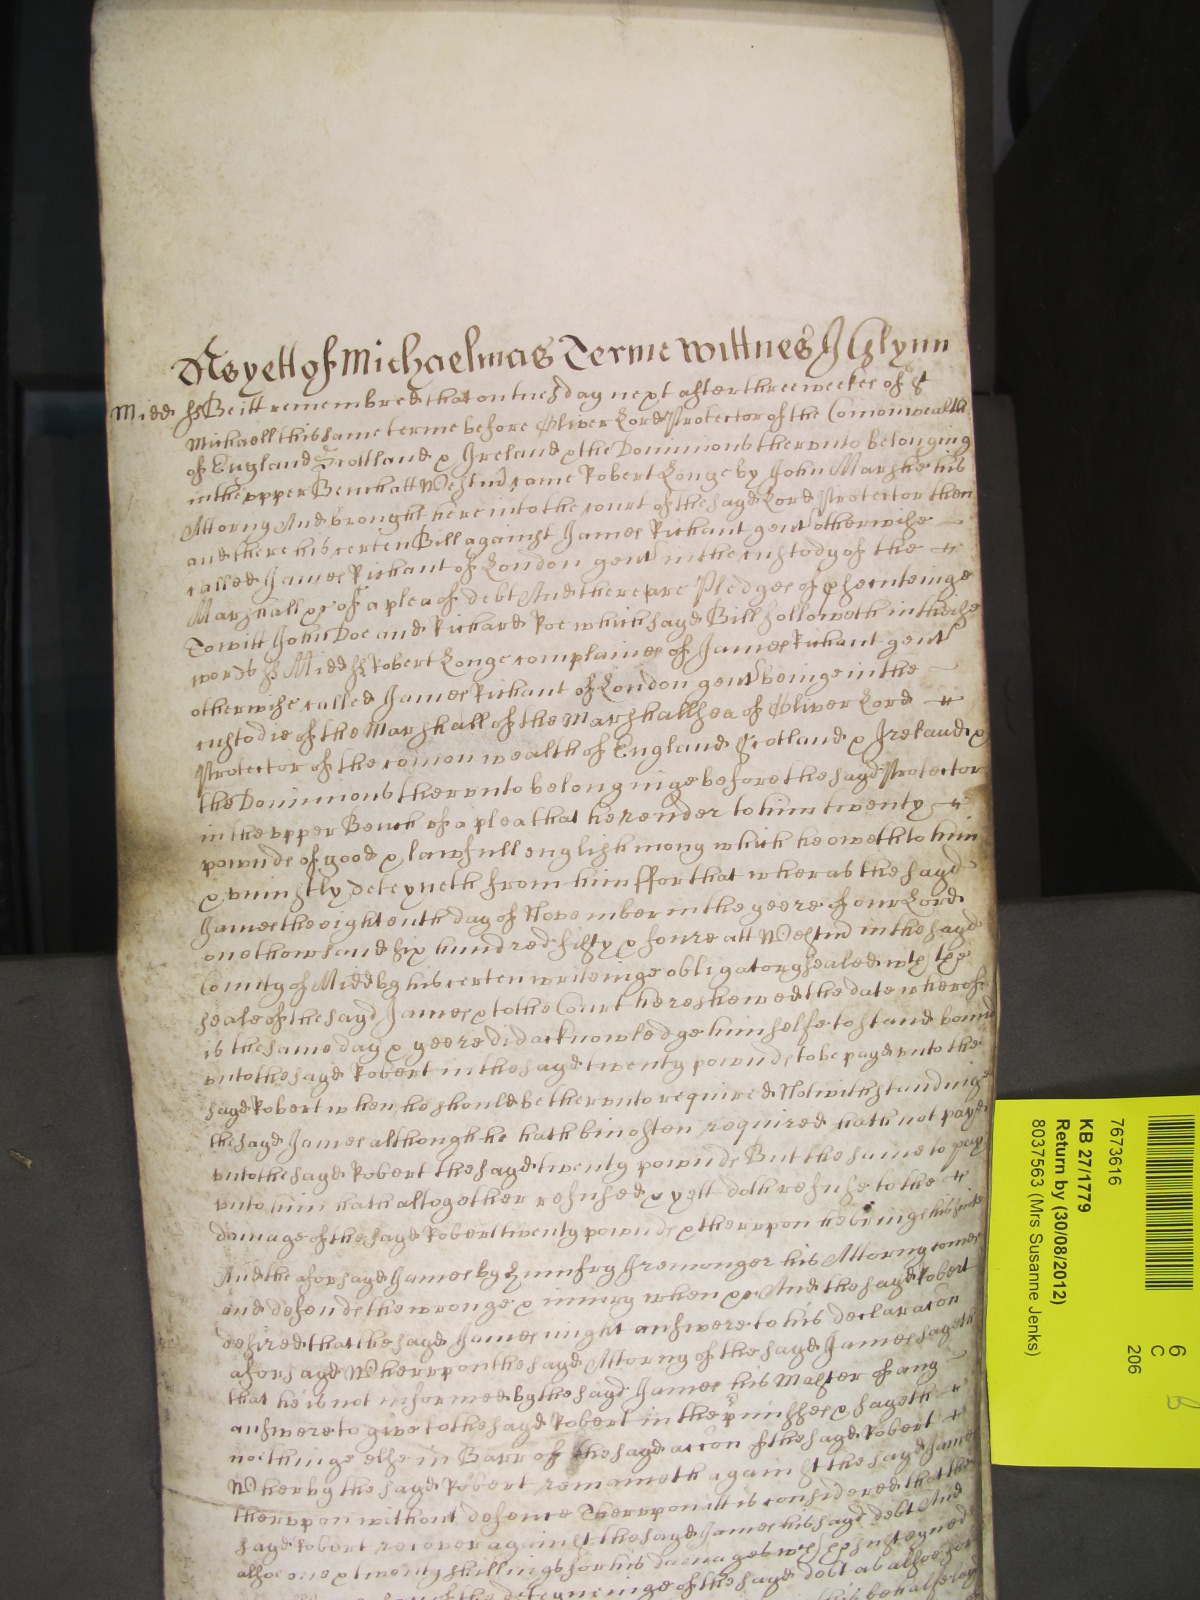 As yett of Michaelmas Terme Wittnes J Glynn
Midd ss Be itt remembred that on tuesday next after three weekes of St
Michaell this same terme before Oliver Lord Protector of the Comonwealth
of England Scotland & Ireland & the Dominions therunto belonging
in the upper Bench att Westm̃ came Robert Longe by John Marshe his
Attorny And brought here into the court of the sayd Lord Protector then
and there his certen Bill against James Richaut gent otherwise
called James Richaut of London gent in the custody of the
Marshall &c of a plea of debt And there are Pledges of phecuteinge
To witt John Doe and Richard Roe which sayd Bill followeth in these
words ss Midd ss Robert Longe complaines of James Richaut gent
otherwise called James Richaut of London gent beinge in the
custodie of the Marshall of the Marshallsea of Oliver Lord
Protector of the comon wealth of England Scotland & Ireland &
the Dominions therunto belonginge before the sayd Protector
in the upper Bench of a plea that he render to him twenty
pownds of good & lawfull english mony which he oweth to him
& uniustly deteyneth from him ffor that wheras the sayd
James the eightenth day of November in the yeere of our Lord
one thowsand six hundred fifty & foure att Westm̃ in the sayd
County of Midd by his certen writeinge obligatory sealed wth the
seale of the sayd James & to the Court here shewed the date wherof
is the same day & yeere did acknowledge himselfe to stand bound
unto the sayd Robert in the sayd twenty pownds to be payd unto the
sayd Robert when he should be therunto required Notwithstandinge
the sayd James although he hath bin often required hath not payd
unto the sayd Robert the sayd twenty pownds But the same to pay
unto him hath altogether refused & yett doth refuse to the
damage of the sayd Robert twenty pownds & therupon he bringe his sute
And the aforsayd James by Humfry Iremonger his Attorny comes
and defends the wronge & iniury when &c And the sayd Robert
desired that the sayd James might answere to his declaracon
aforsayd Wherupon the sayd Attorny of the sayd James sayeth
that he is not informed by the sayd James his Master of any
answere to give to the sayd Robert in the p̃misses & sayeth
nothinge else in Barr of the sayd accon of the sayd Robert
Wherby the sayd Robert remaineth against the sayd James
therupon without defence Therupon itt is considered that the
sayd Robert recover against the sayd James his sayd debt And
alsoe one & twenty shillings for his damages wch he susteyned
of the deteyneinge of the sayd debt as alsoe for
this behalfe
7673616
KB 27/1779
Return by (30/08/2012)
8037563 (Mrs Susanne Jenks)
6
C
206